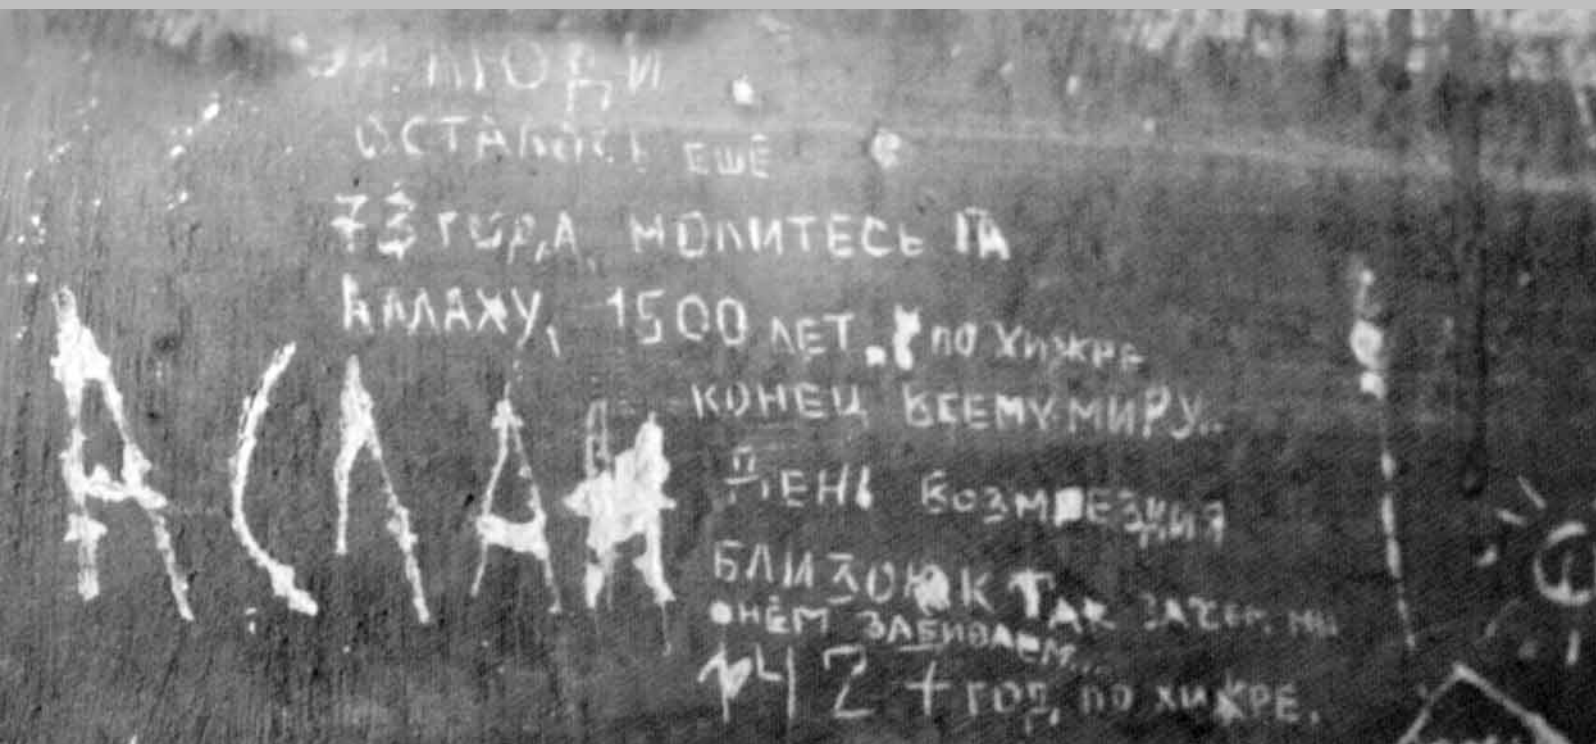 ЭЙ ЛЮДИ
ОСТАЛОСЬ ЕЩЁ
73 ГОДА, МОЛИТЕСЬ
АЛЛАХУ, 1500 ЛЕТ. ПО ХИЖРЕ
КОНЕЦ ВСЕМУ МИРУ..
ДЕНЬ ВОЗМЕЗДИЯ
БЛИЗОК ТАК ЗАЧЕМ МЫ
О НЁМ ЗАБИВАЕМ...
1427 ГОД, ПО ХИЖРЕ.
АСЛАН